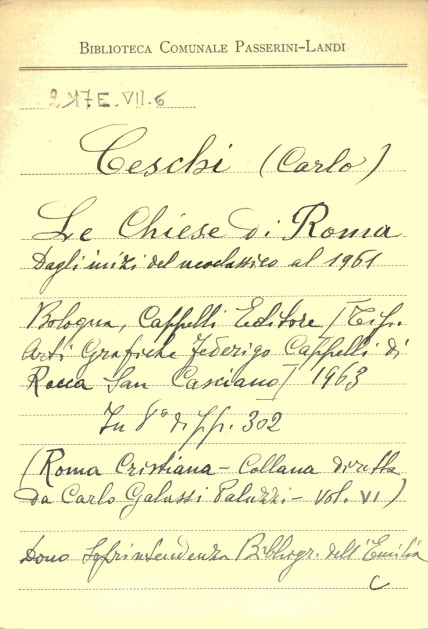 BIBLIOTECA COMUNALE PASSERINI-LANDI
2 17 E. VII. 6
Ceschi (Carlo)
Le Chiese di Roma
Dagli inizi del neoclassico al 1961
Bologna, Cappelli Editore [Tip.
Arti Grafiche Federigo Cappelli di
Rocca San Casciano] 1963
In 8° di pp. 302
(Roma Cristiana - Collana diretta
da Carlo Galassi Paluzzi - Vol. VI)
Dono Soprintendenza Bibliogr. dell'Emilia
C